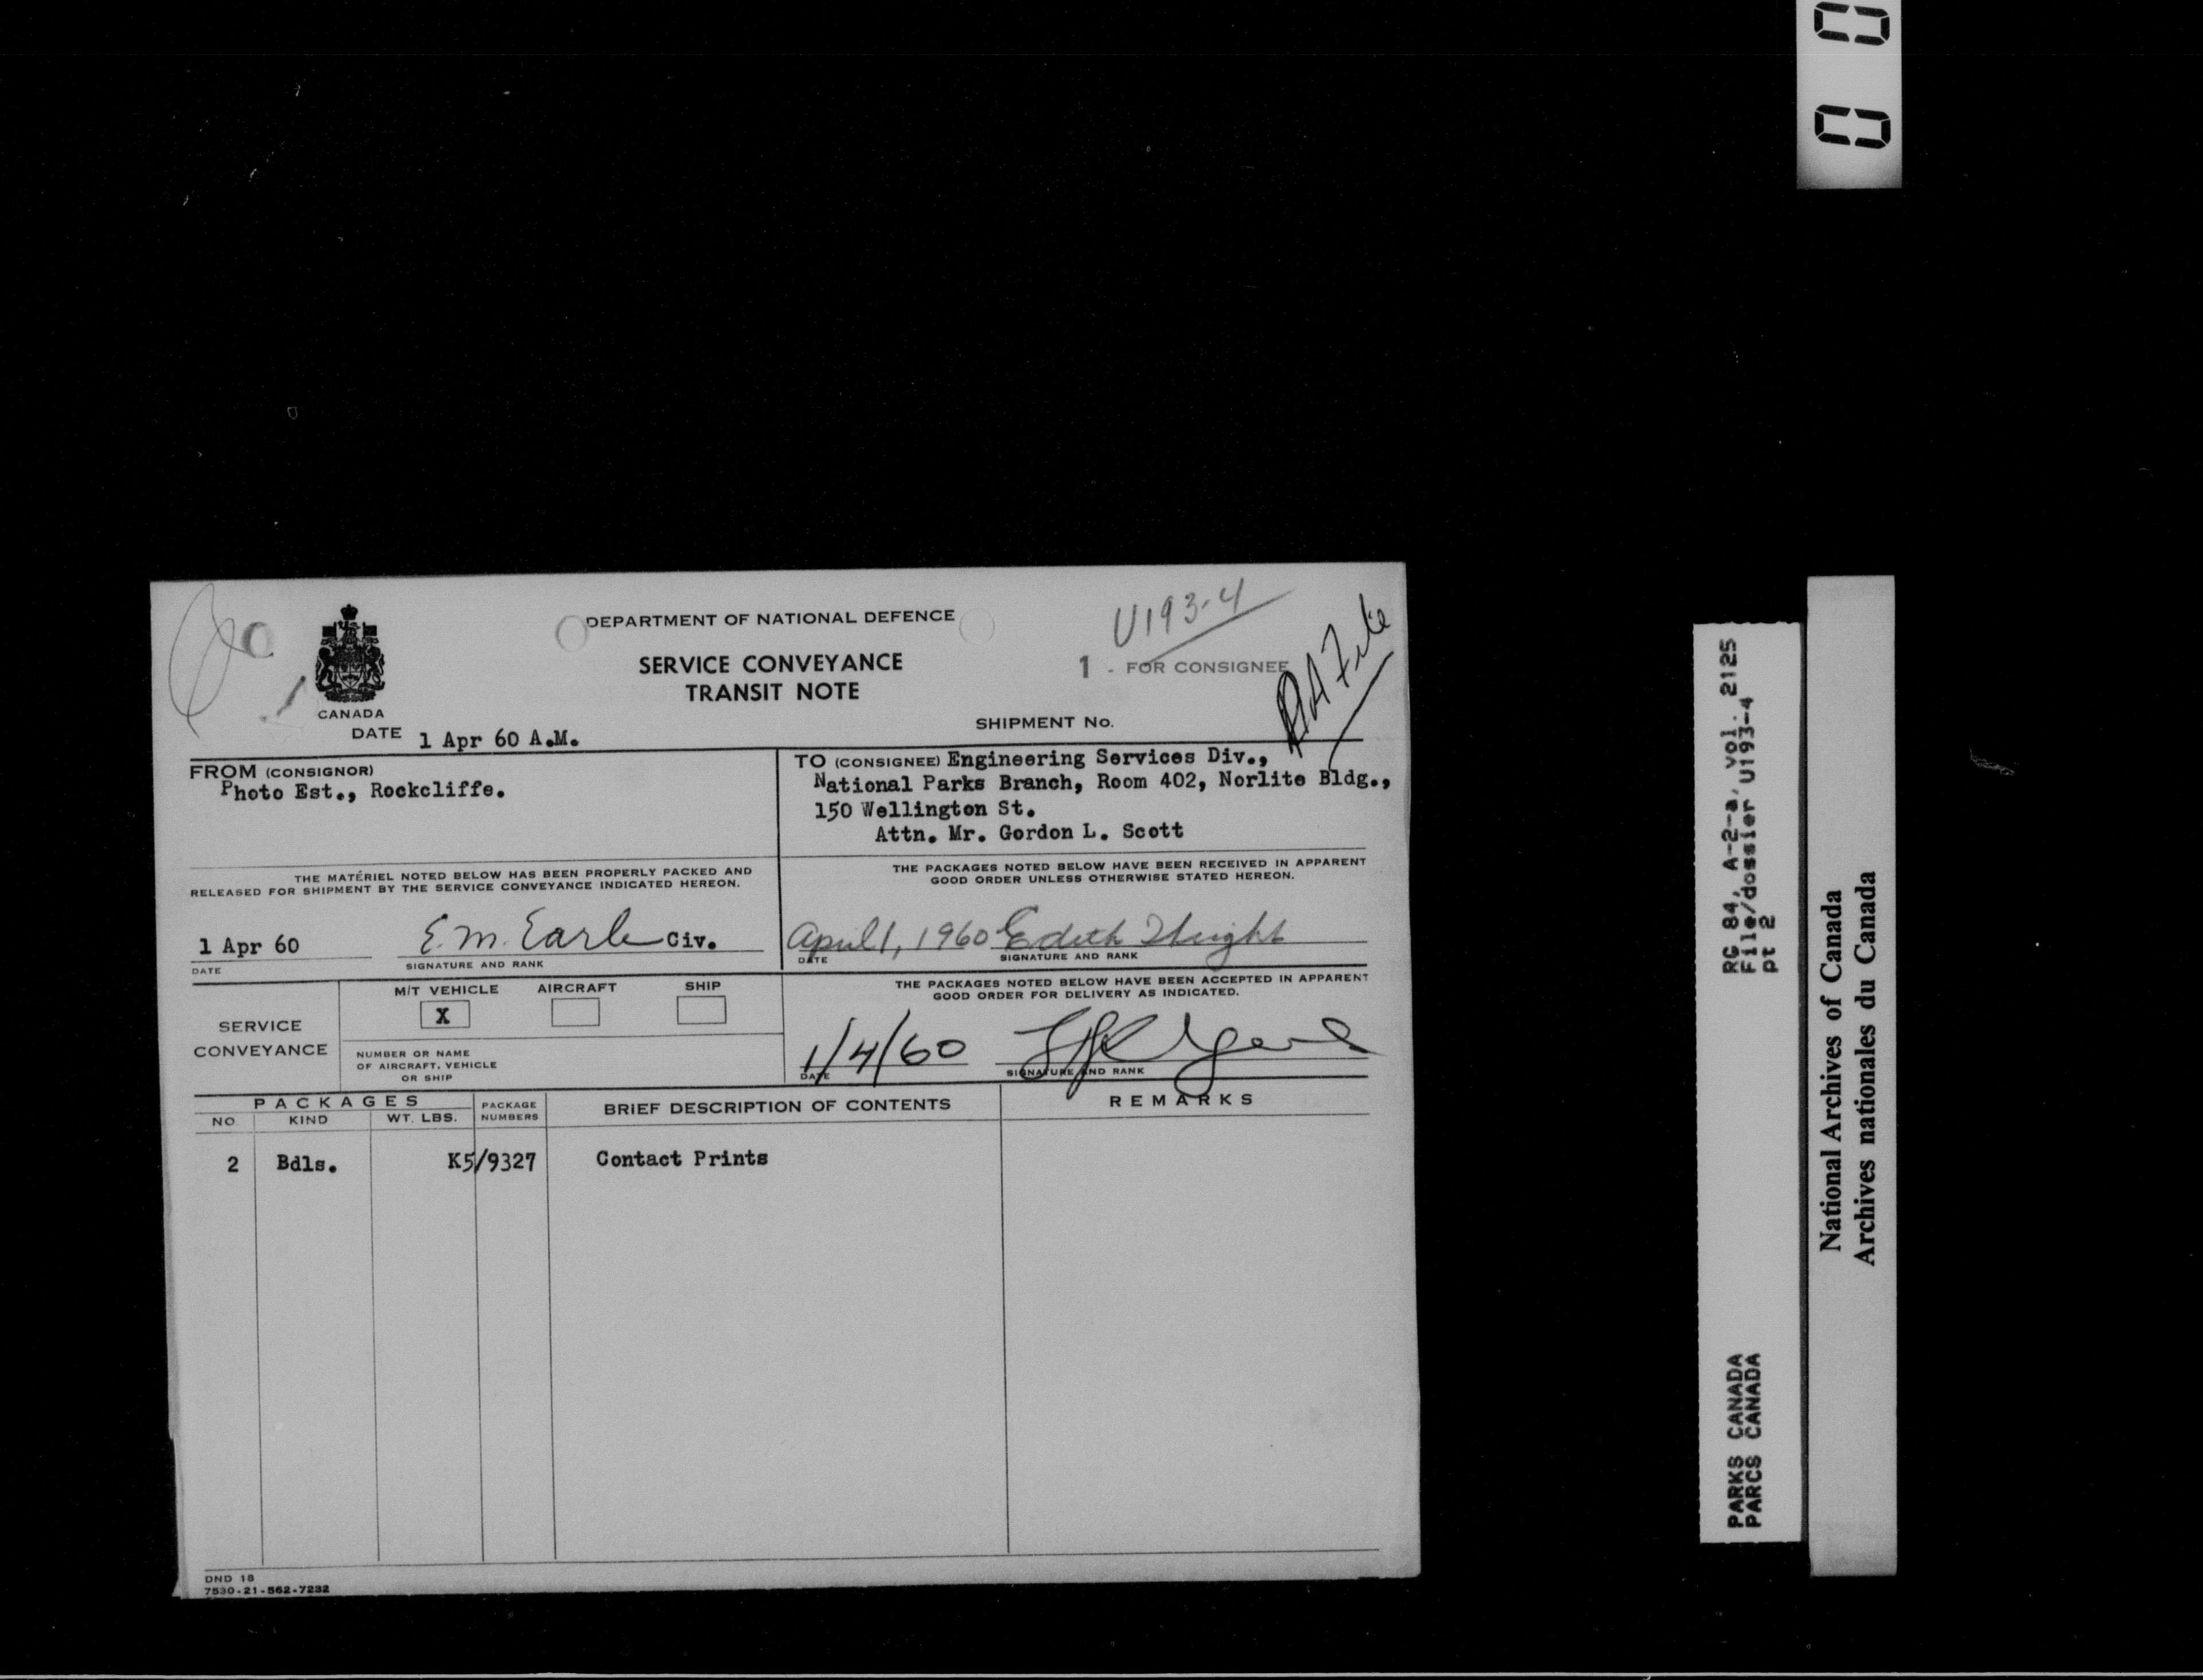 DEPARTMENT OF NATIONAL DEFENCE
U193-4
SERVICE CONVEYANCE
TRANSIT NOTE
1 - FOR CONSIGNEE
File
CANADA
DATE 1 Apr 60 A.M.
SHIPMENT No.
FROM (CONSIGNOR)
Photo Est., Rockcliffe.
TO (CONSIGNEE) Engineering Services Div.,
National Parks Branch, Room 402, Norlite Bldg.,
150 Wellington St.
Attn. Mr. Gordon L. Scott
THE MATÉRIEL NOTED BELOW HAS BEEN PROPERLY PACKED AND
RELEASED FOR SHIPMENT BY THE SERVICE CONVEYANCE INDICATED HEREON.
THE PACKAGES NOTED BELOW HAVE BEEN RECEIVED IN APPARENT
GOOD ORDER UNLESS OTHERWISE STATED HEREON.
1 Apr 60 E. M. Earle Civ.
DATE SIGNATURE AND RANK
April 1, 1960 Edith
DATE SIGNATURE AND RANK
SERVICE
CONVEYANCE
M/T VEHICLE AIRCRAFT SHIP
X
NUMBER OR NAME
OF AIRCRAFT, VEHICLE
OR SHIP
THE PACKAGES NOTED BELOW HAVE BEEN ACCEPTED IN APPARENT
GOOD ORDER FOR DELIVERY AS INDICATED.
1/4/60
DATE SIGNATURE AND RANK
PACKAGES PACKAGE NUMBERS BRIEF DESCRIPTION OF CONTENTS REMARKS
NO KIND WT. LBS.
2 Bdls. K5/9327 Contact Prints
DND 18
7530-21-562-7232
RG 84, A-2-a, vol. 2125
File/dossier U193-4
pt 2
PARKS CANADA
PARCS CANADA
National Archives of Canada
Archives nationales du Canada
0 0